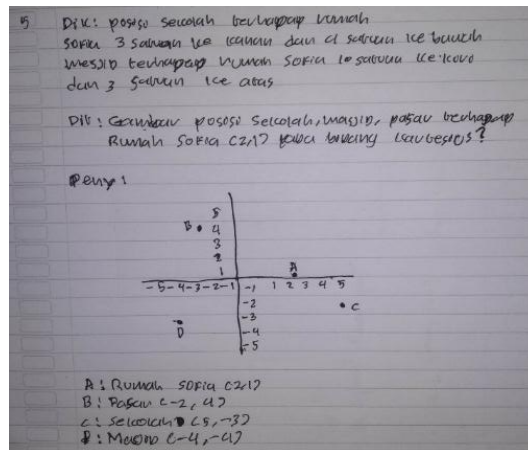 5 Dik: posisi sekolah terhadap rumah
Sofia 3 satuan ke kanan dan 4 satuan ke bawah
Mesjid terhadap rumah Sofia satuan ke kiri
dan 3 satuan ke atas
Dit: Gambar posisi sekolah, masjid, pasar terhadap
Rumah Sofia (2,1) pada bidang kartesius?
Peny:
5
B 4
3
2
1 A
-5 -4 -3 -2 -1 -1 1 2 3 4 5
-2 C
-3
D -4
-5
A: Rumah Sofia (2,1)
B: Pasar (-2, 4)
C: Sekolah (5,-3)
D: (-4,-4)